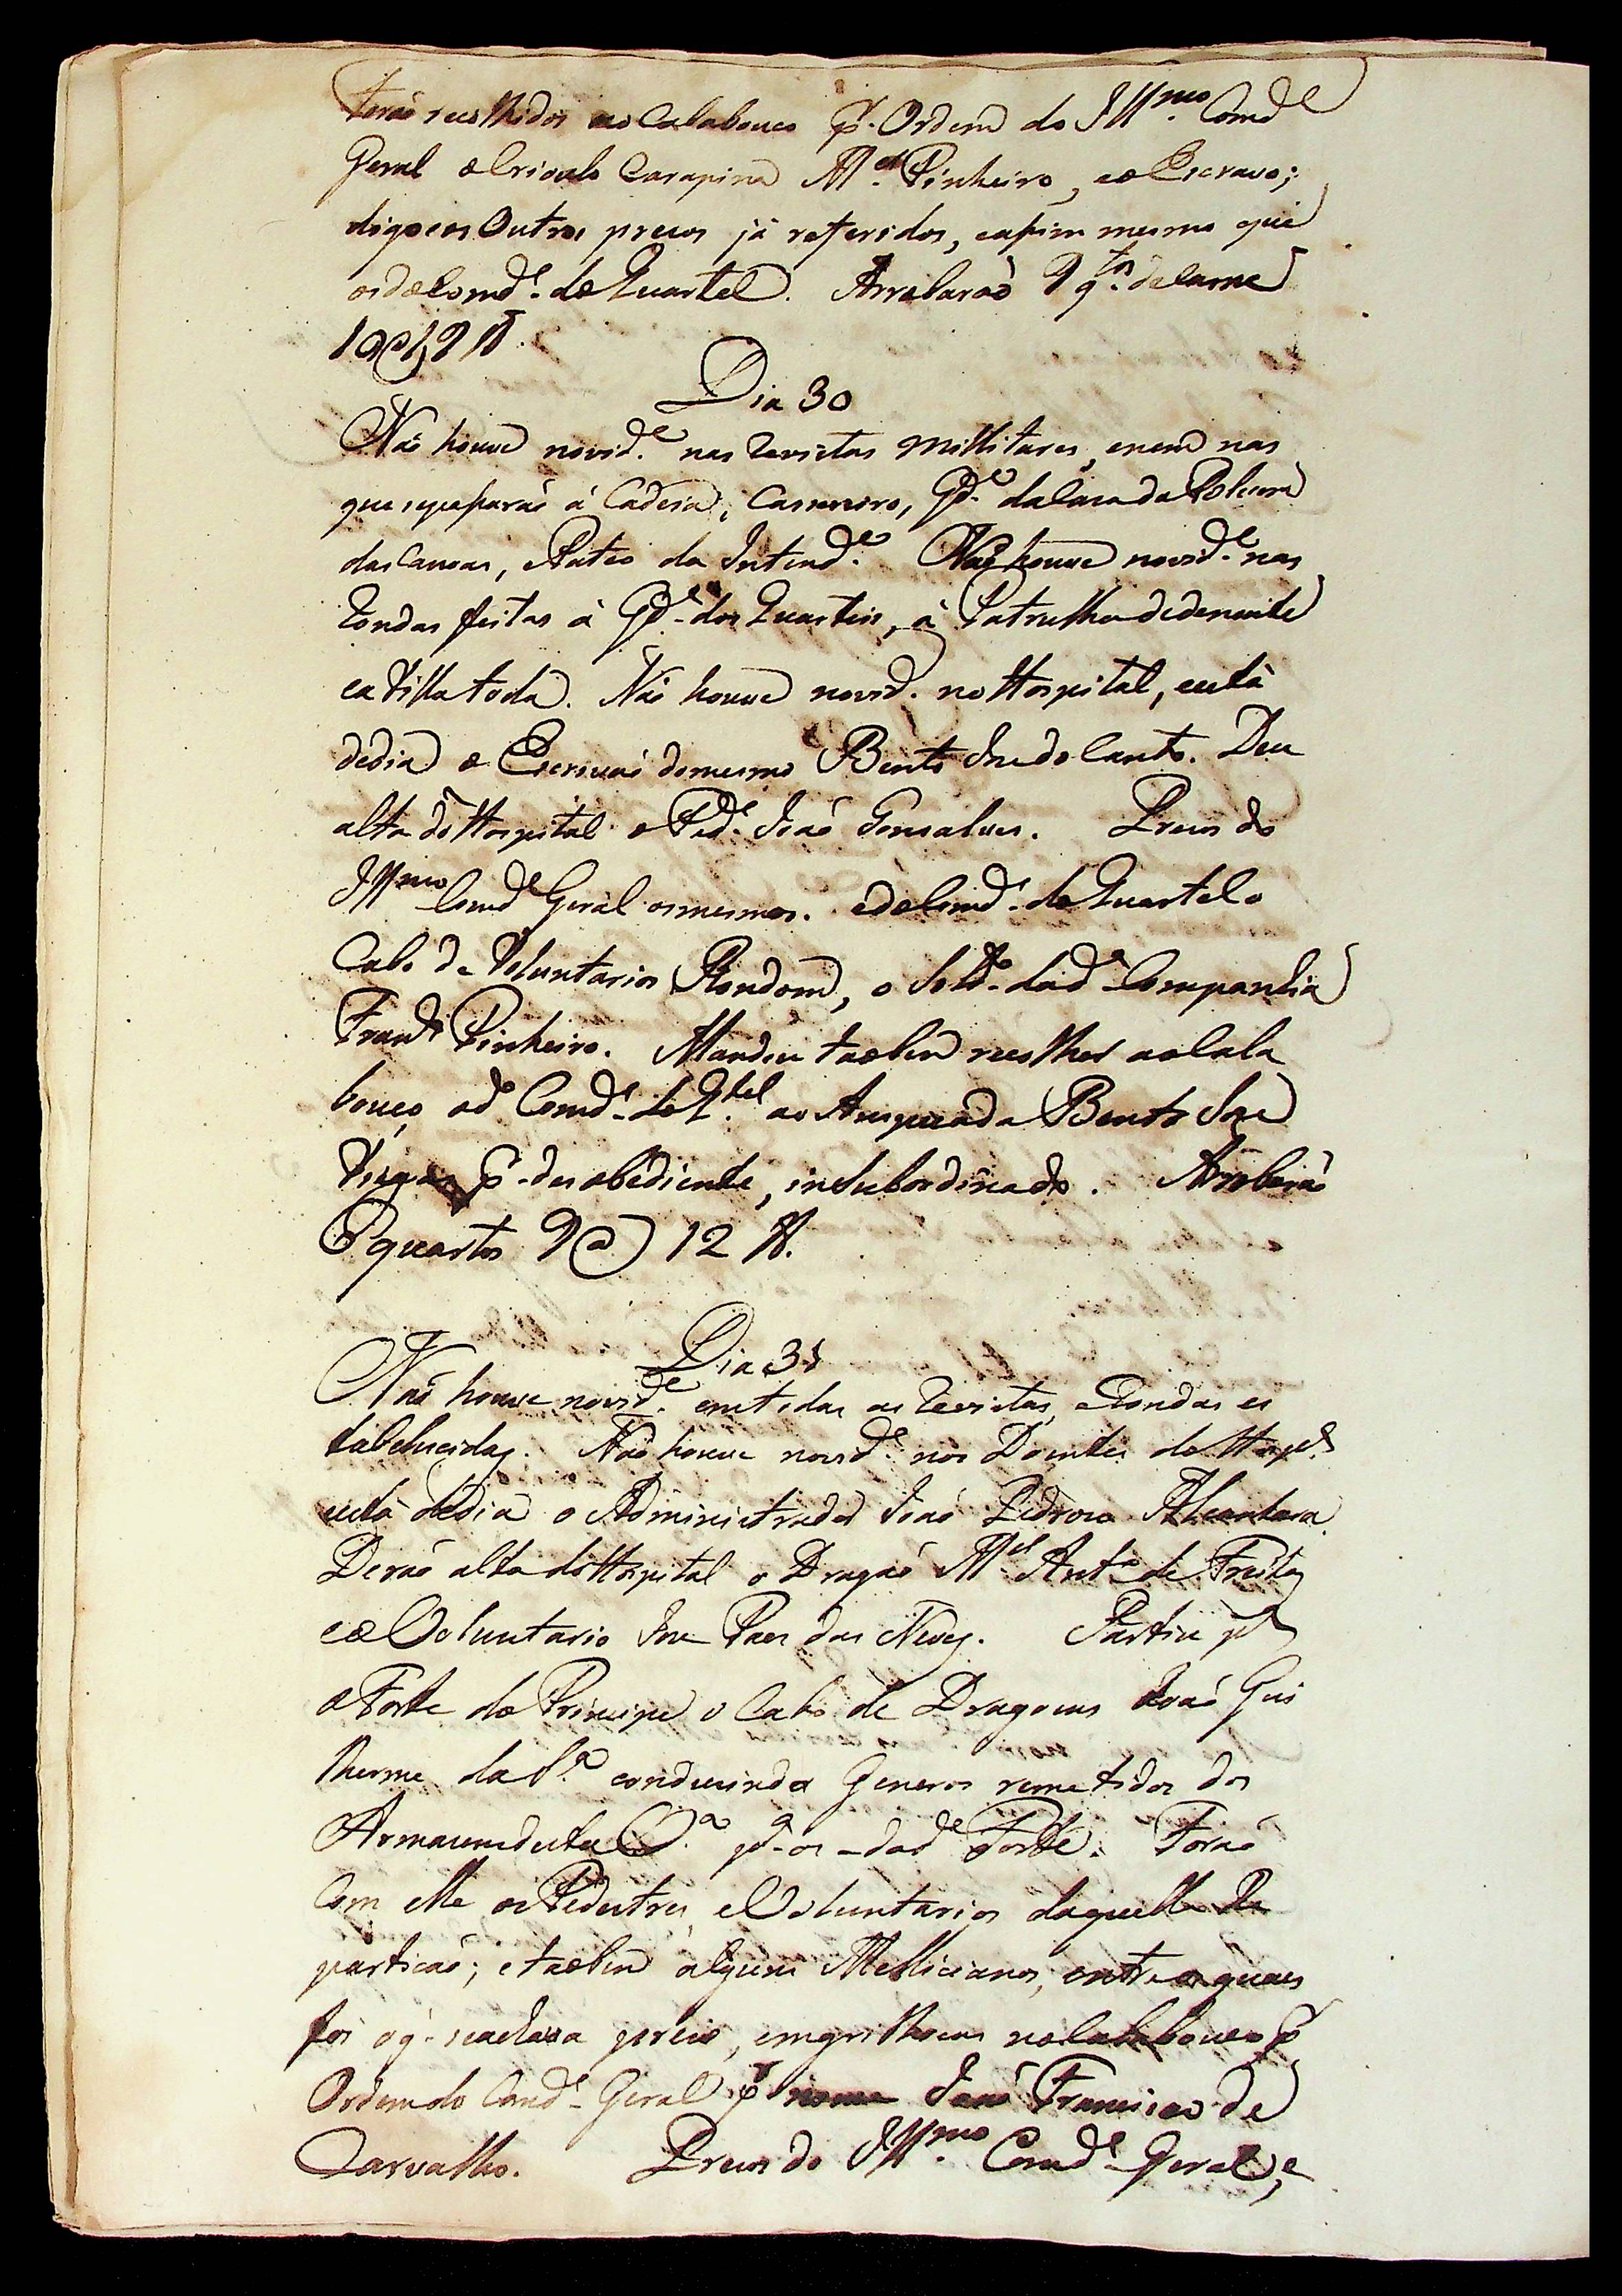 forão recolhidos ao Calabouço p.r Ordem do Ill.mo Comd.e
Geral o Crioulo Carapina M.el Pinheiro, e o Escravo;
digo e os Outros prezos já referidos, e assim mesmo que
os do Comd.e do Quartel. Arrobarão 9 q.tos de Carne
10@ 12 lb.
Dia 30
Não houve novid.e nas revistas Millitares, e nem nas
que se passarão á Cadeia, Carneiro, G.de da Caza da Polvora
das Canoas, e Pateo da Intend.a Não houve novid.e nas
rondas feitas á G.de dos Quarteis, á Patrulha de de noite
e a Villa toda. Não houve novid. no Hospital, e está
de dia o Escrivão do mesmo Bento Joze do Canto. Deu
alta do Hospital o Ped.e João Gonsalves. Prezos do
Ill.mo Comd.e Geral os mesmos. e do Comd.e do Quartel o
Cabo de Voluntarios Rondom, o Sold.o da d.a Companhia
Fran.co Pinheiro. Mandou tãobem recolher ao Cala
bouço o d.o Comd.e do Q.tel ao Anspeçada Bento Joze
Viegas p.r desobediente, insubordinado. Arrobarão
8 quartos 9@ 12 lb.
Dia 31
Não houve novid.e em todas as revistas, e rondas es
tabelecidas. Não houve novid.e nos Doentes do Hosp.al
está de dia o Administrador João Pedrozo Alcantara.
Derão alta do Hospital o Dragão M.el Ant.o de Freitas
e o Voluntario Joze Paes das Neves. Partiu p.a
o Forte do Principe o Cabo de Dragoens João Gui
lherme da S.a conduzindo Generos remetidos dos
Armazens desta V.a p.a os do d.o Forte. Forão
Com elle os Pedestres, e Voluntarios daquella Re
partição; e tãobem alguns Melicianos, entre os quaes
foi o q. se achava prezo, em grilhoens no Calabouço p.r
Ordem do Comd.e Geral p.r nome João Francisco de
Carvalho. Prezos do Ill.mo Comd.e Geral, e